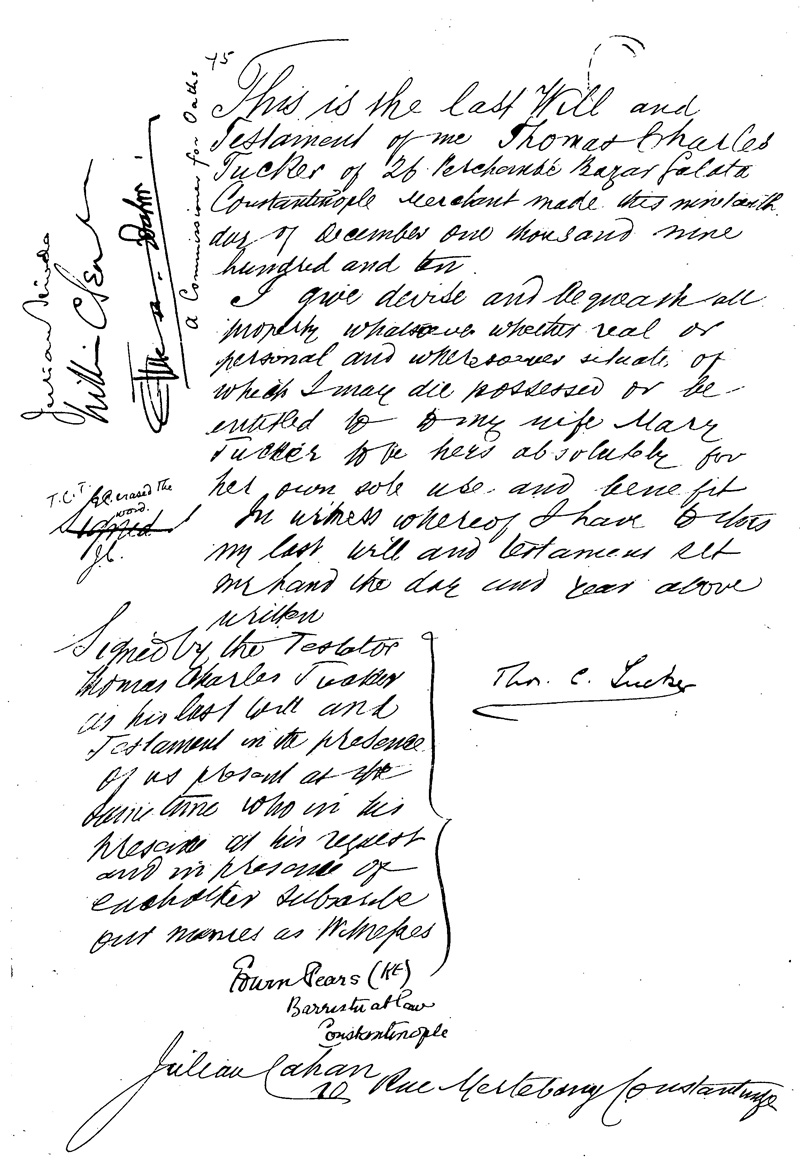 45
This is the last Will and
Testament of me Thomas Charles
Tucker of 26 Perchembé Bazar Galata
Constantinople Merchant made this nineteenth
day of December one thousand nine
hundred and ten
I give devise and bequeath all
property whatsoever whether real or
personal and wheresoever situate of
which I may die possessed or be
entitled to to my wife Mary
Tucker to be hers absolutely for
her own sole use and benefit
In witness whereof I have to this
my last will and testament set
my hand the day and year above
written
A Commissioner for Oaths
Julian
T.C.T. erased the
word.
Signed
J.C.
Signed by the Testator
Thomas Charles Tucker
as his last will and
Testament in the presence
of us present at the
same time who in his
presence at his request
and in presence of
each other subscribe
our names as Witnesses
Thos. C. Tucker
Edwin Pears (Kt)
Barrister at law
Constantinople
Julian Cahan
10 Rue Constantinople